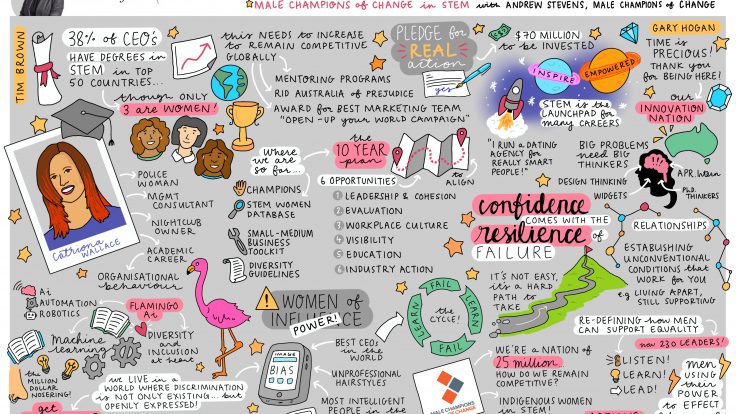 MALE CHAMPIONS of CHANGE in STEM with ANDREW STEVENS, MALE CHAMPIONS of CHANGE
TIM BROWN
38% of CEO's
HAVE DEGREES in
STEM in TOP
50 COUNTRIES...
though only
3 are WOMEN!
this NEEDS to INCREASE
to REMAIN COMPETITIVE
GLOBALLY
MENTORING PROGRAMS
RID AUSTRALIA of PREJUDICE
AWARD for BEST MARKETING TEAM
"OPEN-UP your WORLD CAMPAIGN"
PLEDGE for
REAL
action
yes
$70 MILLION
to BE INVESTED
INSPIRE
EMPOWERED
STEM is the
LAUNCHPAD for
many CAREERS
GARY HOGAN
TIME is
PRECIOUS!
THANK YOU
for BEING HERE!
our
INNOVATION
NATION
CATRIONA
WALLACE
POLICE
WOMAN
MGMT
CONSULTANT
NIGHTCLUB
OWNER
ACADEMIC
CAREER
ORGANISATIONAL
behaviour
where
we are
so far...
CHAMPIONS
STEM WOMEN
DATABASE
SMALL-MEDIUM
BUSINESS
TOOLKIT
DIVERSITY
GUIDELINES
the
10 YEAR
plan
to
ALIGN
6 OPPORTUNITIES
1 LEADERSHIP & COHESION
2 EVALUATION
3 WORKPLACE CULTURE
4 VISIBILITY
5 EDUCATION
6 INDUSTRY ACTION
"I RUN a DATING
AGENCY for
REALLY SMART
PEOPLE!"
BIG PROBLEMS
need BIG
THINKERS
DESIGN THINKING
WIDGETS
APR.Intern
Ph.D.
THINKERS
confidence
COMES with THE
resilience of
FAILURE
IT'S NOT EASY,
it's a HARD
PATH to
TAKE
RELATIONSHIPS
ESTABLISHING
UNCONVENTIONAL
CONDITIONS that
WORK for YOU
eg LIVING APART,
STILL SUPPORTING
Ai
AUTOMATION
ROBOTICS
FLAMINGO
Ai
Machine
learning
DIVERSITY
and
INCLUSION
at heart
the
MILLION
DOLLAR
NOSERING!
we LIVE in a
WORLD WHERE DISCRIMINATION
is NOT ONLY EXISTING... but
OPENLY EXPRESSED!
get
WOMEN of
INFLUENCE
POWER!
IMAGE
BIAS
BEST CEOs
in the
WORLD
UNPROFESSIONAL
HAIRSTYLES
MOST INTELLIGENT
PEOPLE in the
FAIL
LEARN
FAIL
LEARN
the
CYCLE!
MALE CHAMPIONS
WE'RE a NATION of
25 million.
HOW do WE REMAIN
COMPETITIVE?
INDIGENOUS WOMEN
in STEM!
RE-DEFINING how MEN
can SUPPORT EQUALITY
now 230 LEADERS!
LISTEN!
LEARN!
LEAD!
men
USING
their
POWER
to EFFECT